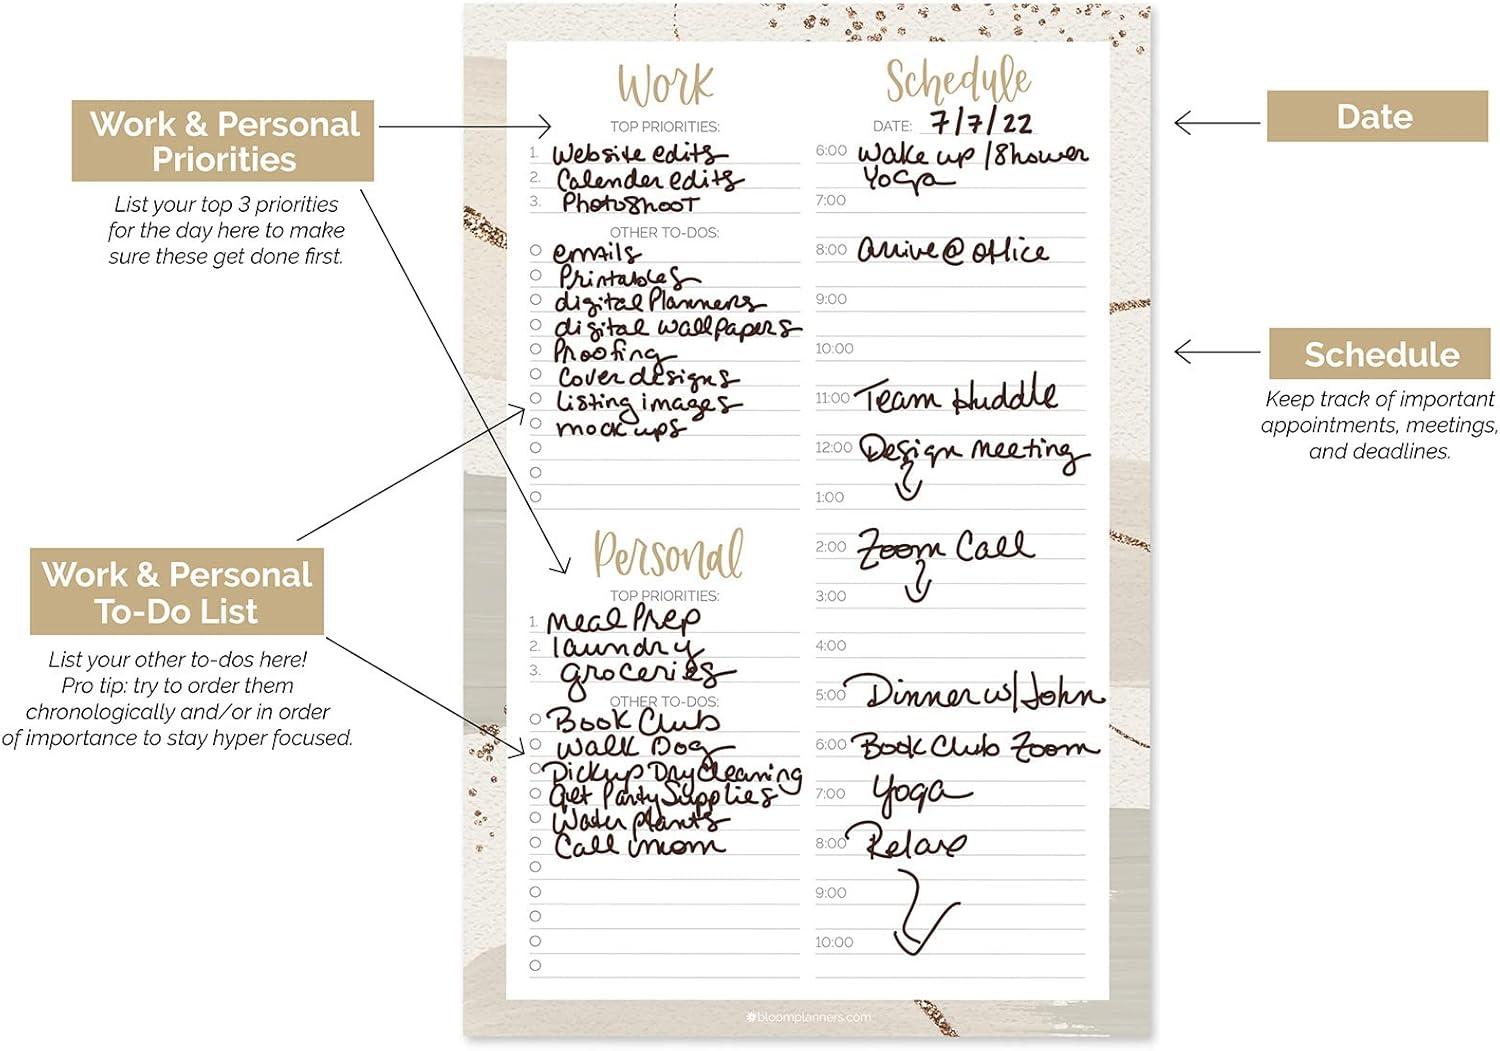 Work & Personal
Priorities
List your top 3 priorities
for the day here to make
sure these get done first.
Work & Personal
To-Do List
List your other to-dos here!
Pro tip: try to order them
chronologically and/or in order
of importance to stay hyper focused.
Work
TOP PRIORITIES:
1. Website edits
2. Calender edits
3. Photoshoot
OTHER TO-DOS:
emails
Printables
digital Planners
digital wallpapers
Proofing
Cover designs
Listing images
mock ups
Personal
TOP PRIORITIES:
1. Meal Prep
2. laundry
3. groceries
OTHER TO-DOS:
Book Club
Walk Dog
Pickup Dry Cleaning
Get Party Supplies
Water plants
Call mom
Schedule
DATE: 7/7/22
6:00 Wake up / Shower
Yoga
7:00
8:00 arrive @ office
9:00
10:00
11:00 Team Huddle
12:00 Design meeting
1:00
2:00 Zoom Call
3:00
4:00
5:00 Dinner w/ John
6:00 Book Club Zoom
7:00 Yoga
8:00 Relax
9:00
10:00
bloomplanners.com
Date
Schedule
Keep track of important
appointments, meetings,
and deadlines.